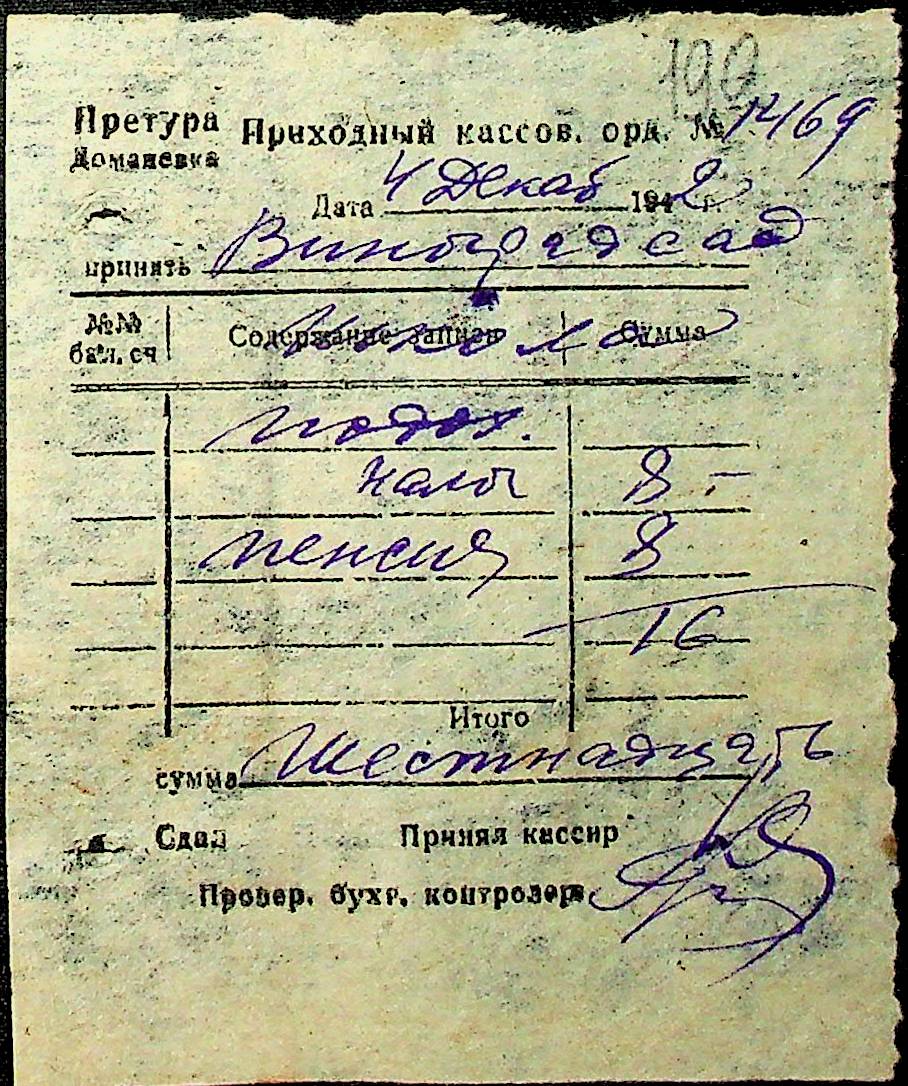 190
Претура Приходный кассов. орд. № 1469
Доманевка
Дата 4 Декаб 1942 г.
принять Виноградсад
школа
№№ бал. сч Содержание записи Сумма
подох.
налог 8 -
пенсия 8
16
Итого
сумма Шестнадцать
Сдал Принял кассир
Провер. бухг. контролер